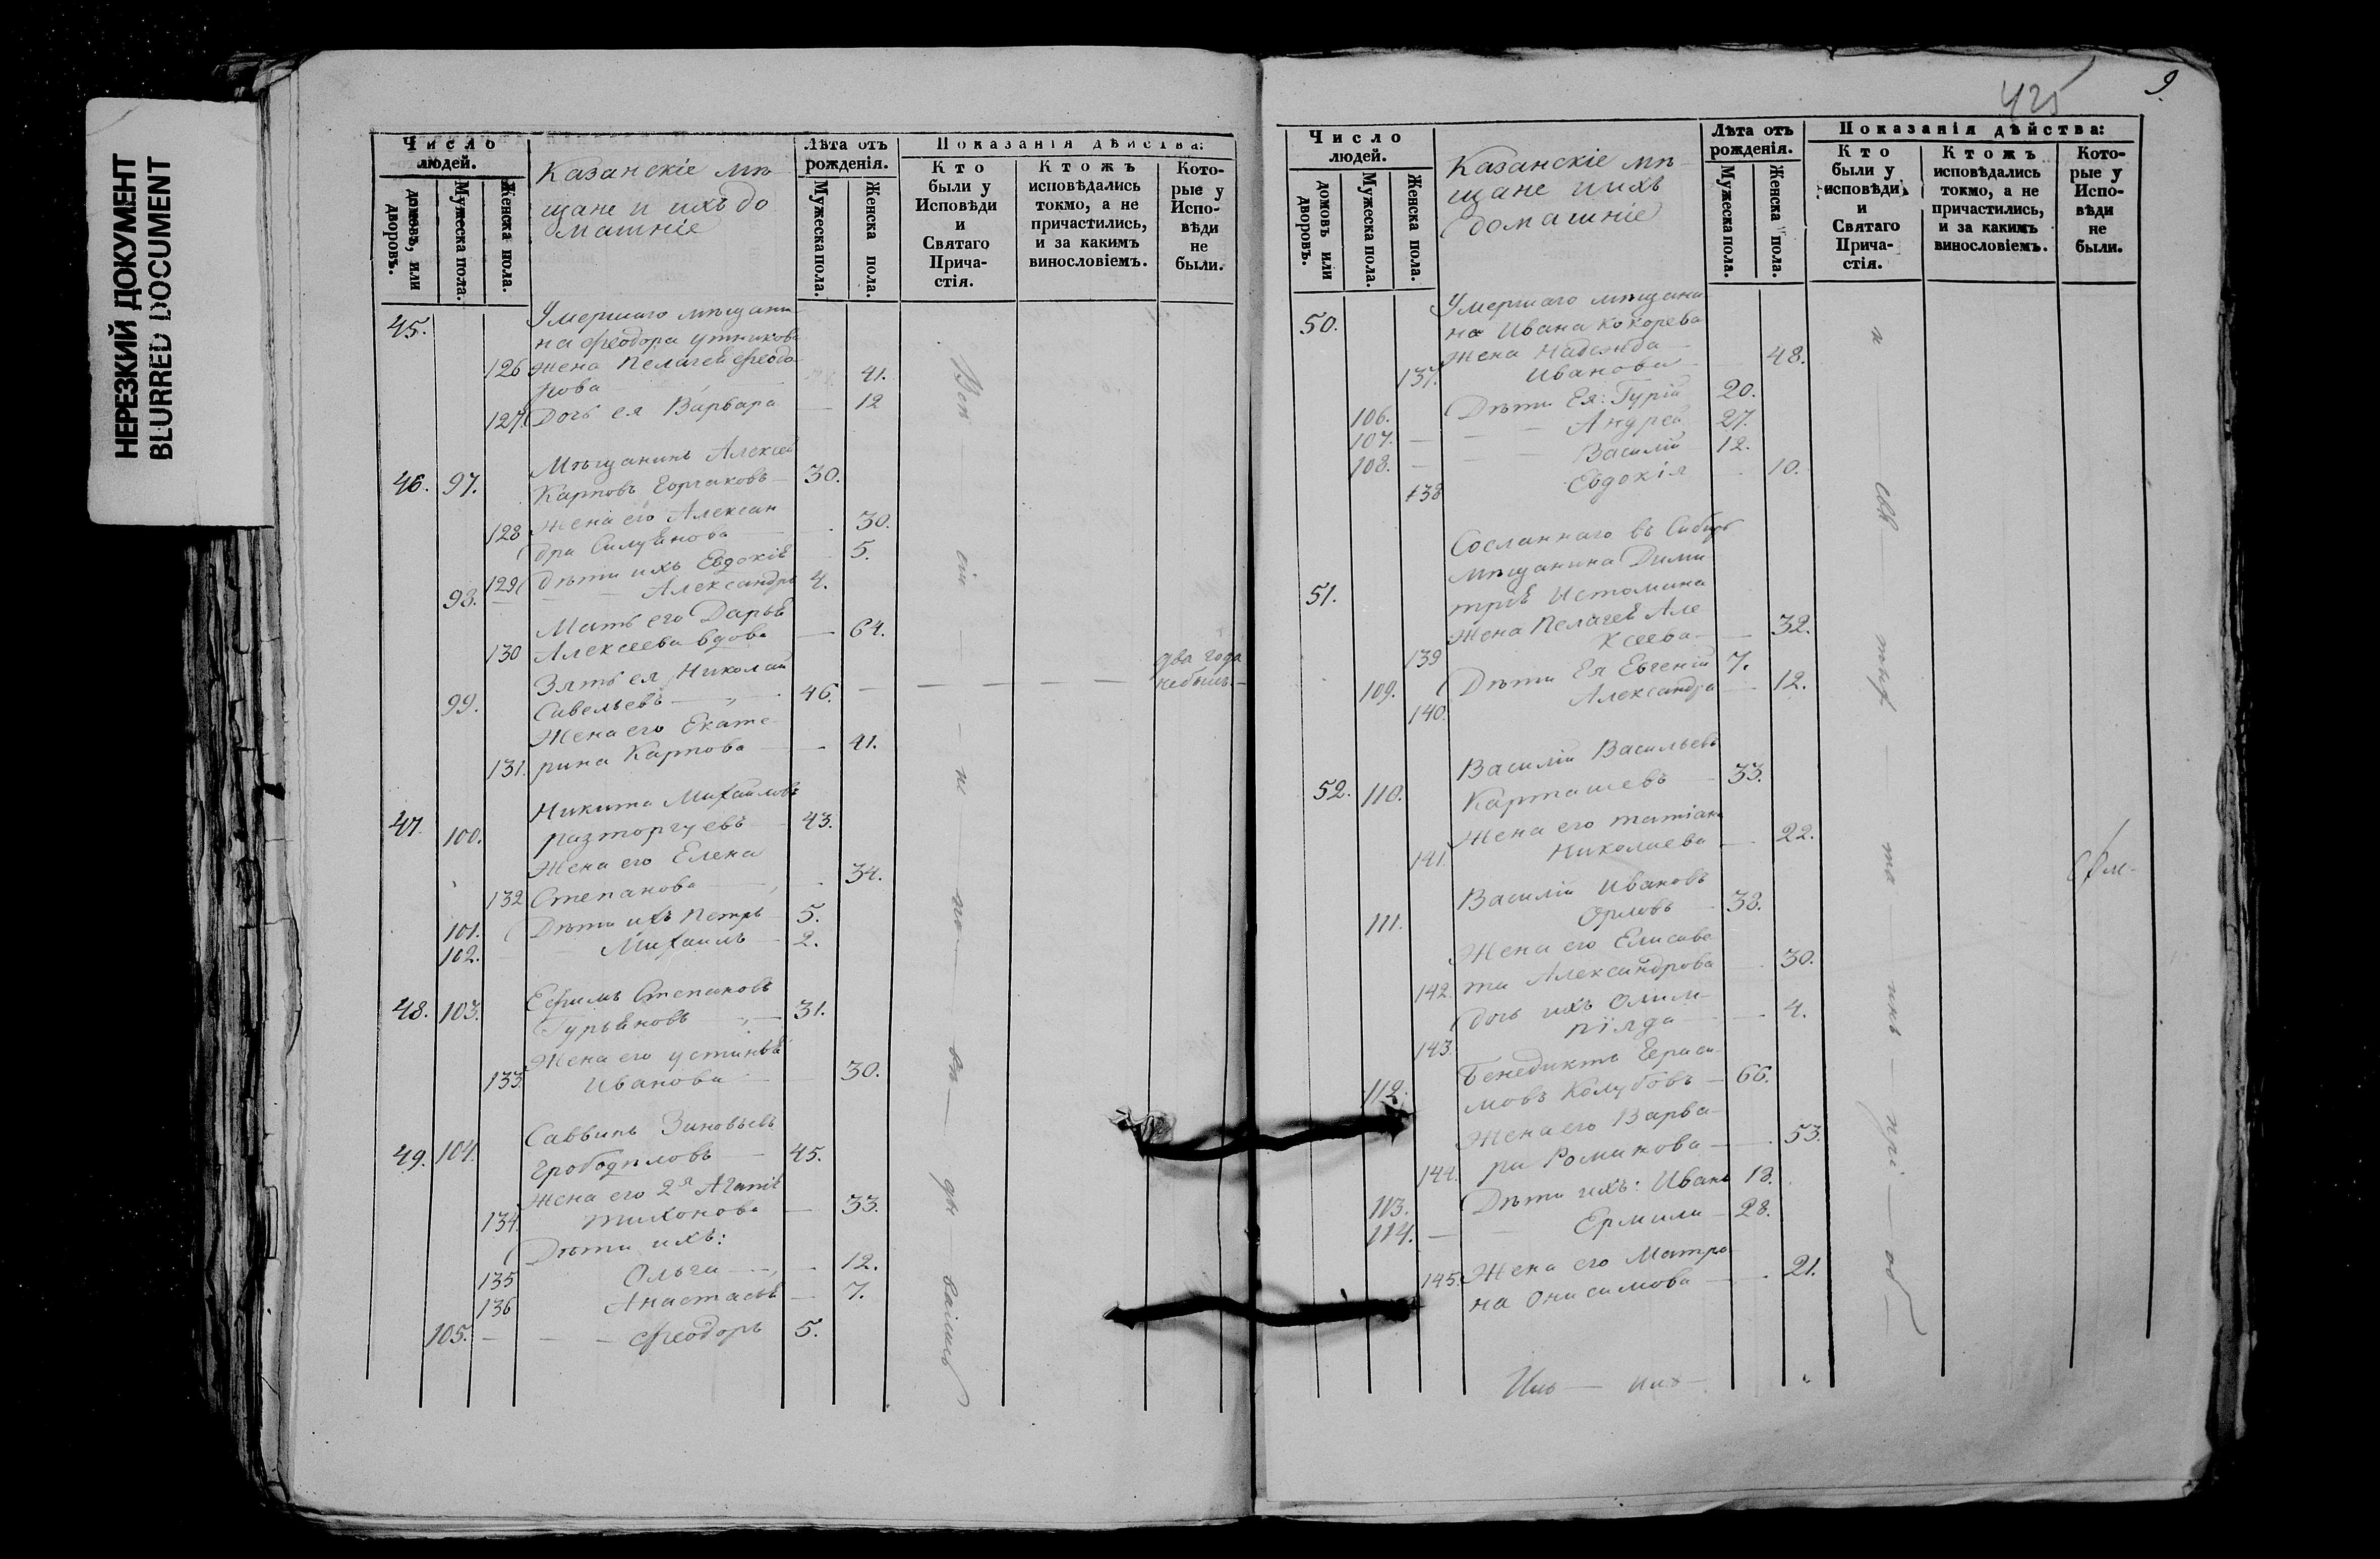 НЕРЕЗКИЙ ДОКУМЕНТ
BLURRED DOCUMENT
Число людей.
домовъ, или дворовъ.
Мужеска пола.
Женска пола.
Казанскіе мѣ
щане и ихъ до
машніе
Лѣта отъ рожденія.
Мужеска пола.
Женска пола.
Показанія дѣйства:
Кто были у Исповѣди и Святаго Прича-стія.
Ктожъ исповѣдались токмо, а не причастились, и за какимъ винословіемъ.
Кото-рые у Испо-вѣди не были.
45. Умершаго мѣщани
на Феодора Утникова
126 жена Пелагея Феодо
рова 41.
127. Дочь ея Варвара 12
Мѣщанинъ Алексей
46. 97. Карповъ 30.
128 Жена его Алексан
дра Силуянова 30.
129 Дѣти ихъ Евдокія 5.
98. Александръ 4.
Мать его Дарья
130 Алексеева вдова 64.
Зять ея Николай
99. Савельевъ 46. два года небылъ
Жена его Екате
131. рина Карпова 41.
Никита Михайловъ
47. 100. Разторгуевъ 43.
Жена его Елена
132 Степанова 34.
101. Дѣти ихъ Петръ 5.
102. Михаилъ 2.
Ефимъ Степановъ
48. 103. Гурьяновъ 31.
Жена его Устинья
133. Иванова 30.
Саввинъ Зиновьевъ
49. 104. Грободѣловъ 45.
Жена его 2я Агапія
134. Тихонова 33.
Дѣти ихъ:
135 Ольга 12.
136 Анастасья 7.
105. Феодоръ 5.
425
9.
Число людей.
домовъ или дворовъ.
Мужеска пола.
Женска пола.
Казанскіе мѣ
щане и ихъ
домашніе
Лѣта отъ рожденія.
Мужеска пола.
Женска пола.
Показанія дѣйства:
Кто были у исповѣди и Святаго Прича-стія.
Ктожъ исповѣдались токмо, а не причастились, и за какимъ винословіемъ.
Кото-рые у Испо-вѣди не были.
50. Умершаго мѣщани
на Ивана Кокорева
Жена Надежда 48.
137. Иванова
106. Дѣти Ея: Гурій 20.
107. Андрей 27.
108. Василій 12.
138 Евдокія 10.
Сосланнаго въ Сибирь
мѣщанина Дими
51. трія Истомина
Жена Пелагея Але
139 ксеева 32.
109. Дѣти Ея Евгеній 7.
140. Александра 12.
Василій Васильевъ
52. 110. Карташевъ 33.
Жена его Татіана
141. Николаева 22.
Василій Ивановъ
111. Орловъ 38.
Жена его Елисаве
142. та Александрова 30.
дочь ихъ Олим-
143. піяда 4.
Бенедиктъ Гераси-
112. мовъ Колубовъ 66.
Жена его Варва-
144. ра Романова 53.
113. Дѣти ихъ: Иванъ 18.
114. Ермилъ 28.
145. Жена его Матро
на Онисимова 21.